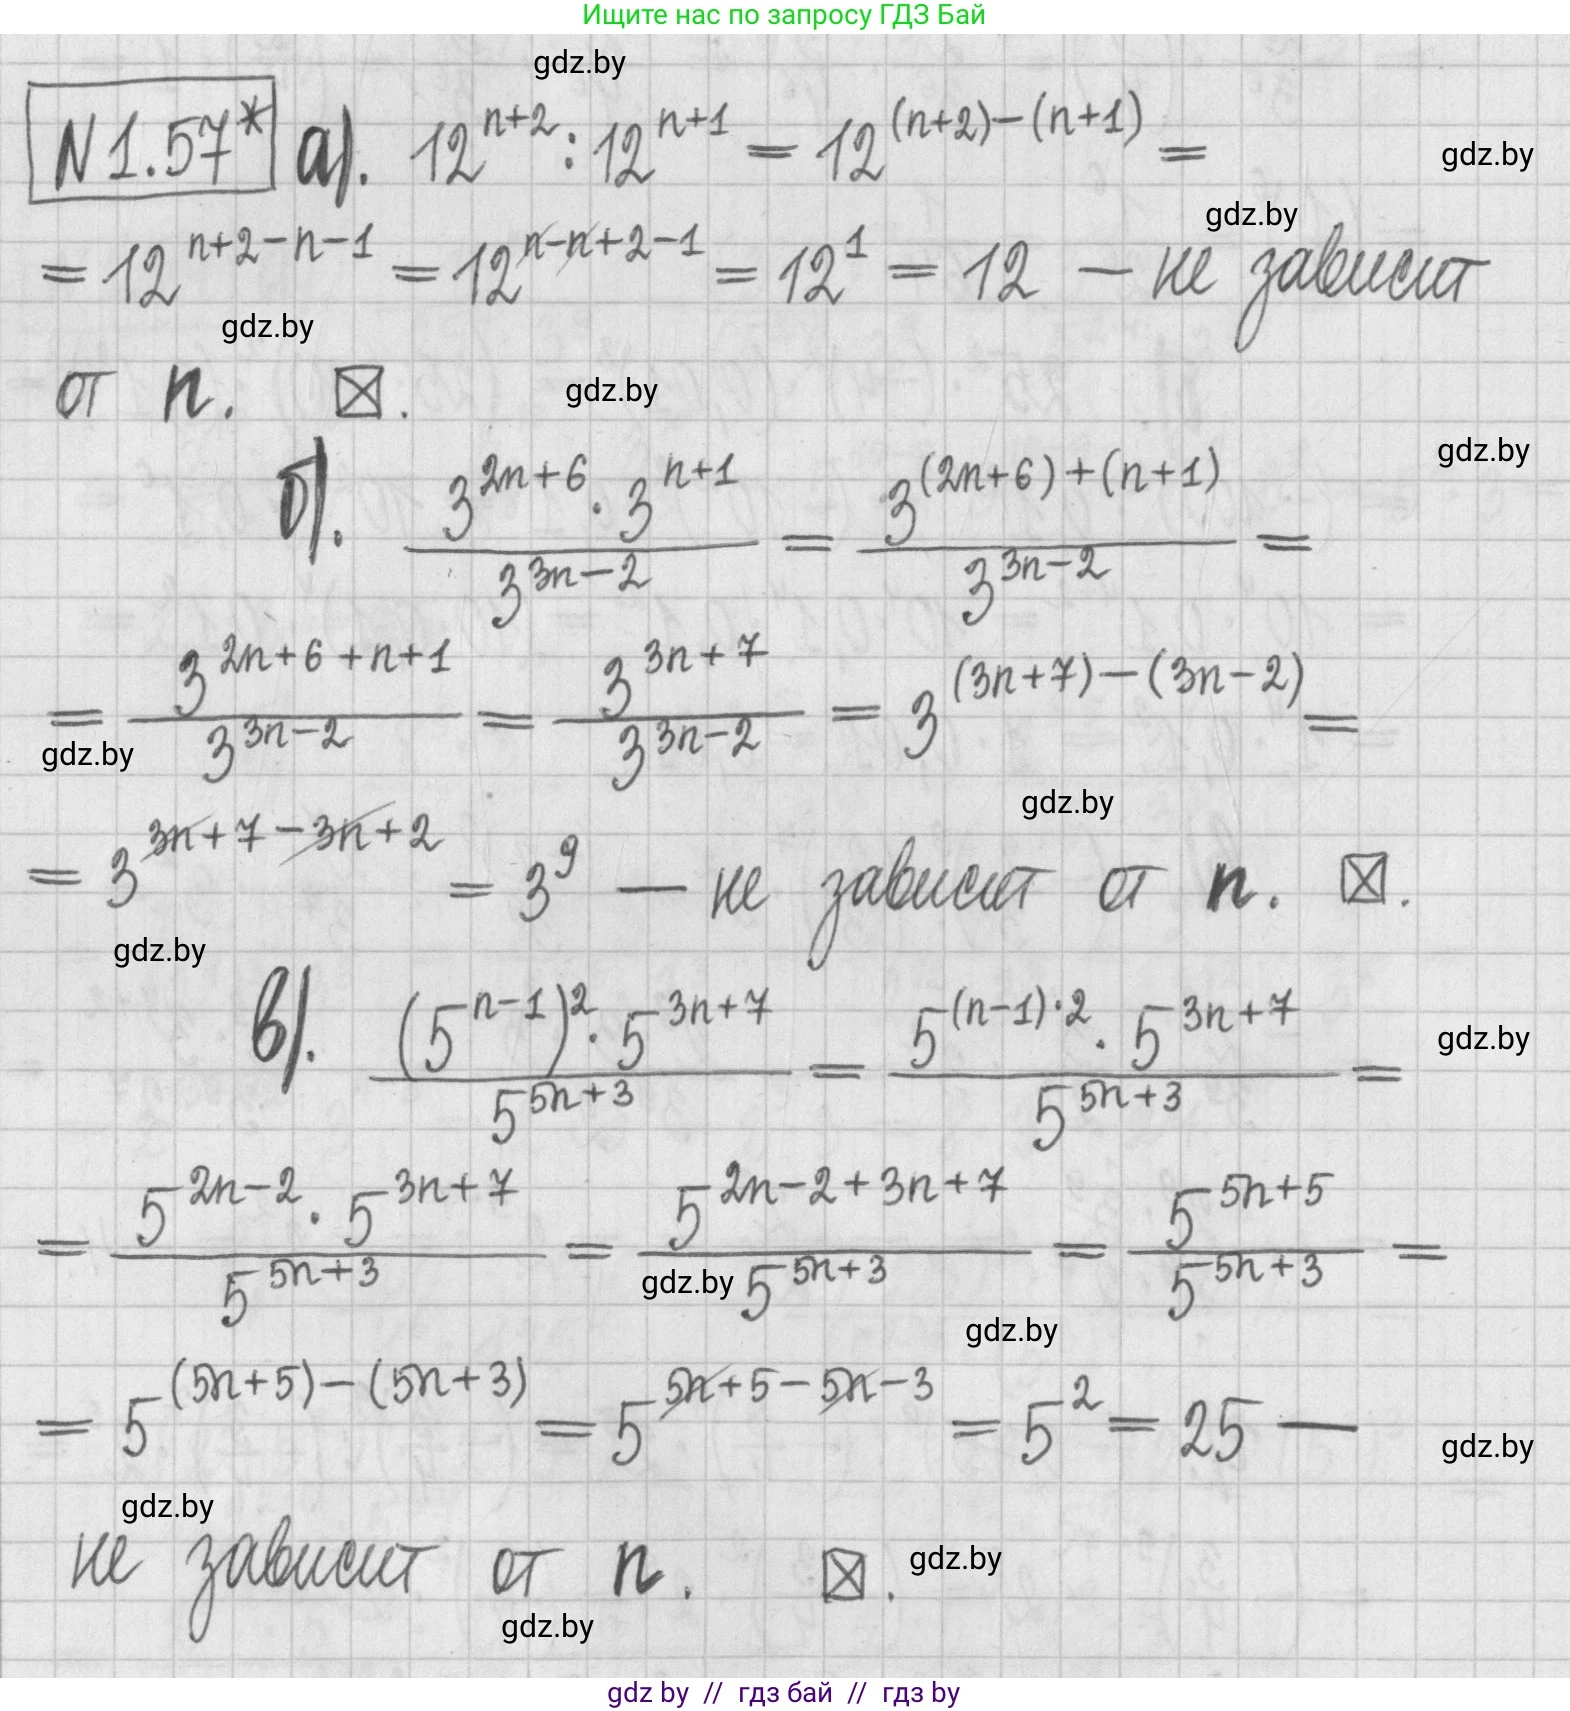 Ищите нас по запросу ГДЗ Бай
gdz.by
N1.57* а). 12^{n+2} : 12^{n+1} = 12^{(n+2)-(n+1)} =
gdz.by
gdz.by
= 12^{n+2-n-1} = 12^{n-n+2-1} = 12^1 = 12 — не зависит
gdz.by
от n. ☒.
gdz.by
gdz.by
б). \frac{3^{2n+6} · 3^{n+1}}{3^{3n-2}} = \frac{3^{(2n+6)+(n+1)}}{3^{3n-2}} =
= \frac{3^{2n+6+n+1}}{3^{3n-2}} = \frac{3^{3n+7}}{3^{3n-2}} = 3^{(3n+7)-(3n-2)} =
gdz.by
gdz.by
= 3^{3n+7-3n+2} = 3^9 — не зависит от n. ☒.
gdz.by
в). \frac{(5^{n-1})^2 · 5^{3n+7}}{5^{5n+3}} = \frac{5^{(n-1)·2} · 5^{3n+7}}{5^{5n+3}} =
gdz.by
= \frac{5^{2n-2} · 5^{3n+7}}{5^{5n+3}} = \frac{5^{2n-2+3n+7}}{5^{5n+3}} = \frac{5^{5n+5}}{5^{5n+3}} =
gdz.by
gdz.by
= 5^{(5n+5)-(5n+3)} = 5^{5n+5-5n-3} = 5^2 = 25 —
gdz.by
gdz.by
не зависит от n. ☒.
gdz.by
gdz.by
gdz by // гдз бай // гдз by